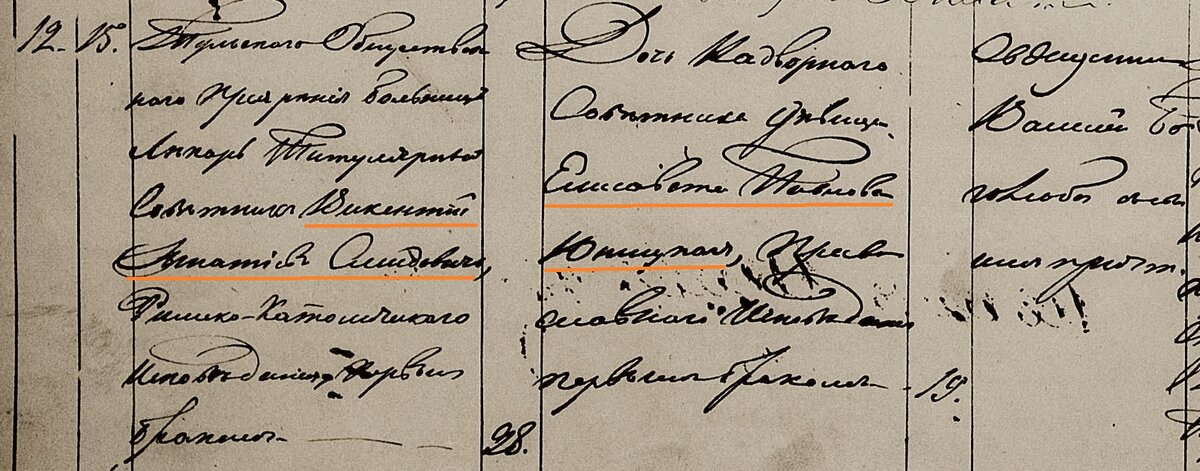 12. 15. Тульского Обществен
наго Призрѣнія больницы
Лѣкарь Титулярный
Совѣтникъ Викентій
Игнатіевъ Смидовичь,
Римско-Католическаго
Исповѣданія, первымъ
бракомъ 28.
Дочь Надворного
Совѣтника дѣвица
Елисавета Павлова
Юницкая, Право
славного Исповѣданія
первымъ бракомъ 19.
Василій